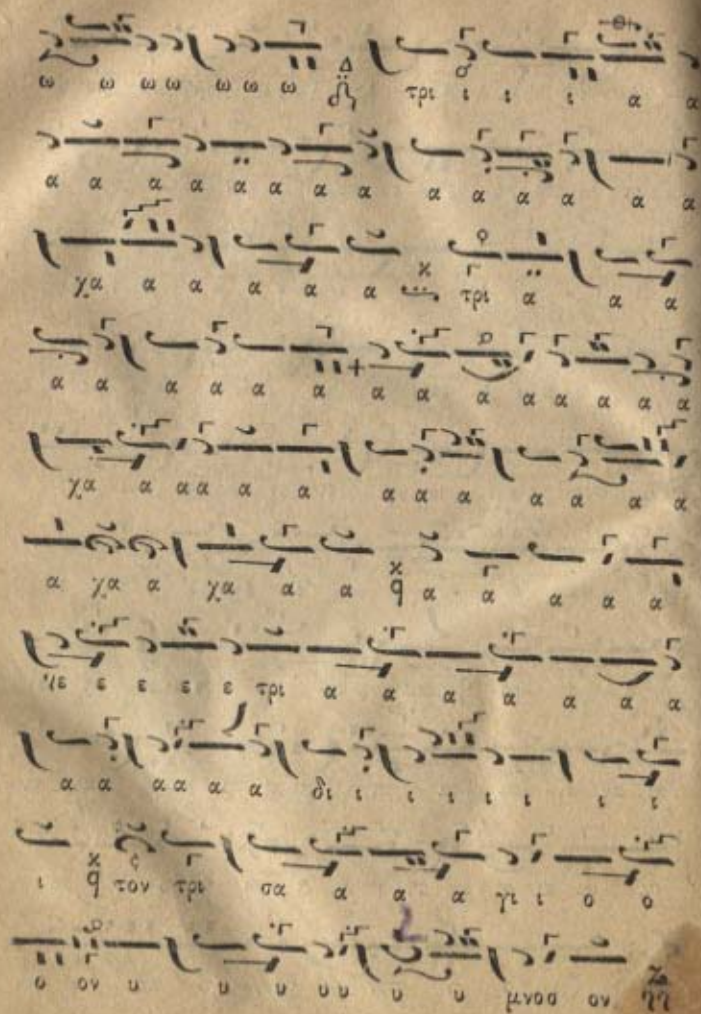 ω ω ωω ω ω ω Δ τρι ι ι ι α α
α α α α α α α α α α α α α α
χα α α α α α τρι α α α
α α α α α α α α α α α α α α
χα α αα α α α α α α α α α
α χα α χα α α α α α α α
χε ε ε ε ε τρι α α α α α α α
α α αα α α ρι ι ι ι ι ι ι ι
ι τον τρι σα α α α γι ι ο ο
ο ον υ υ υ υυ υ υ μνοσ ον